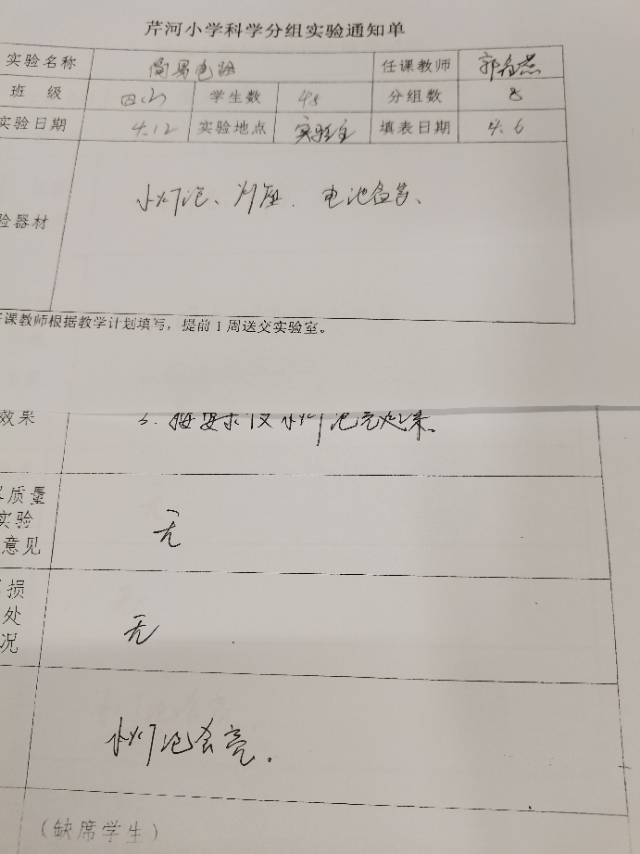 芹河小学科学分组实验通知单
实验名称 简易电路 任课教师
班 级 学生数 45 分组数 8
实验日期 4.12 实验地点 实验室 填表日期 4.6
验器材 小灯泡、灯座、电池盒等、
任课教师根据教学计划填写，提前1周送交实验室。
效果 3. 按要求使小灯泡亮起来。
质量
实验
意见 无
损
处
况 无
小灯泡会亮。
（缺席学生）